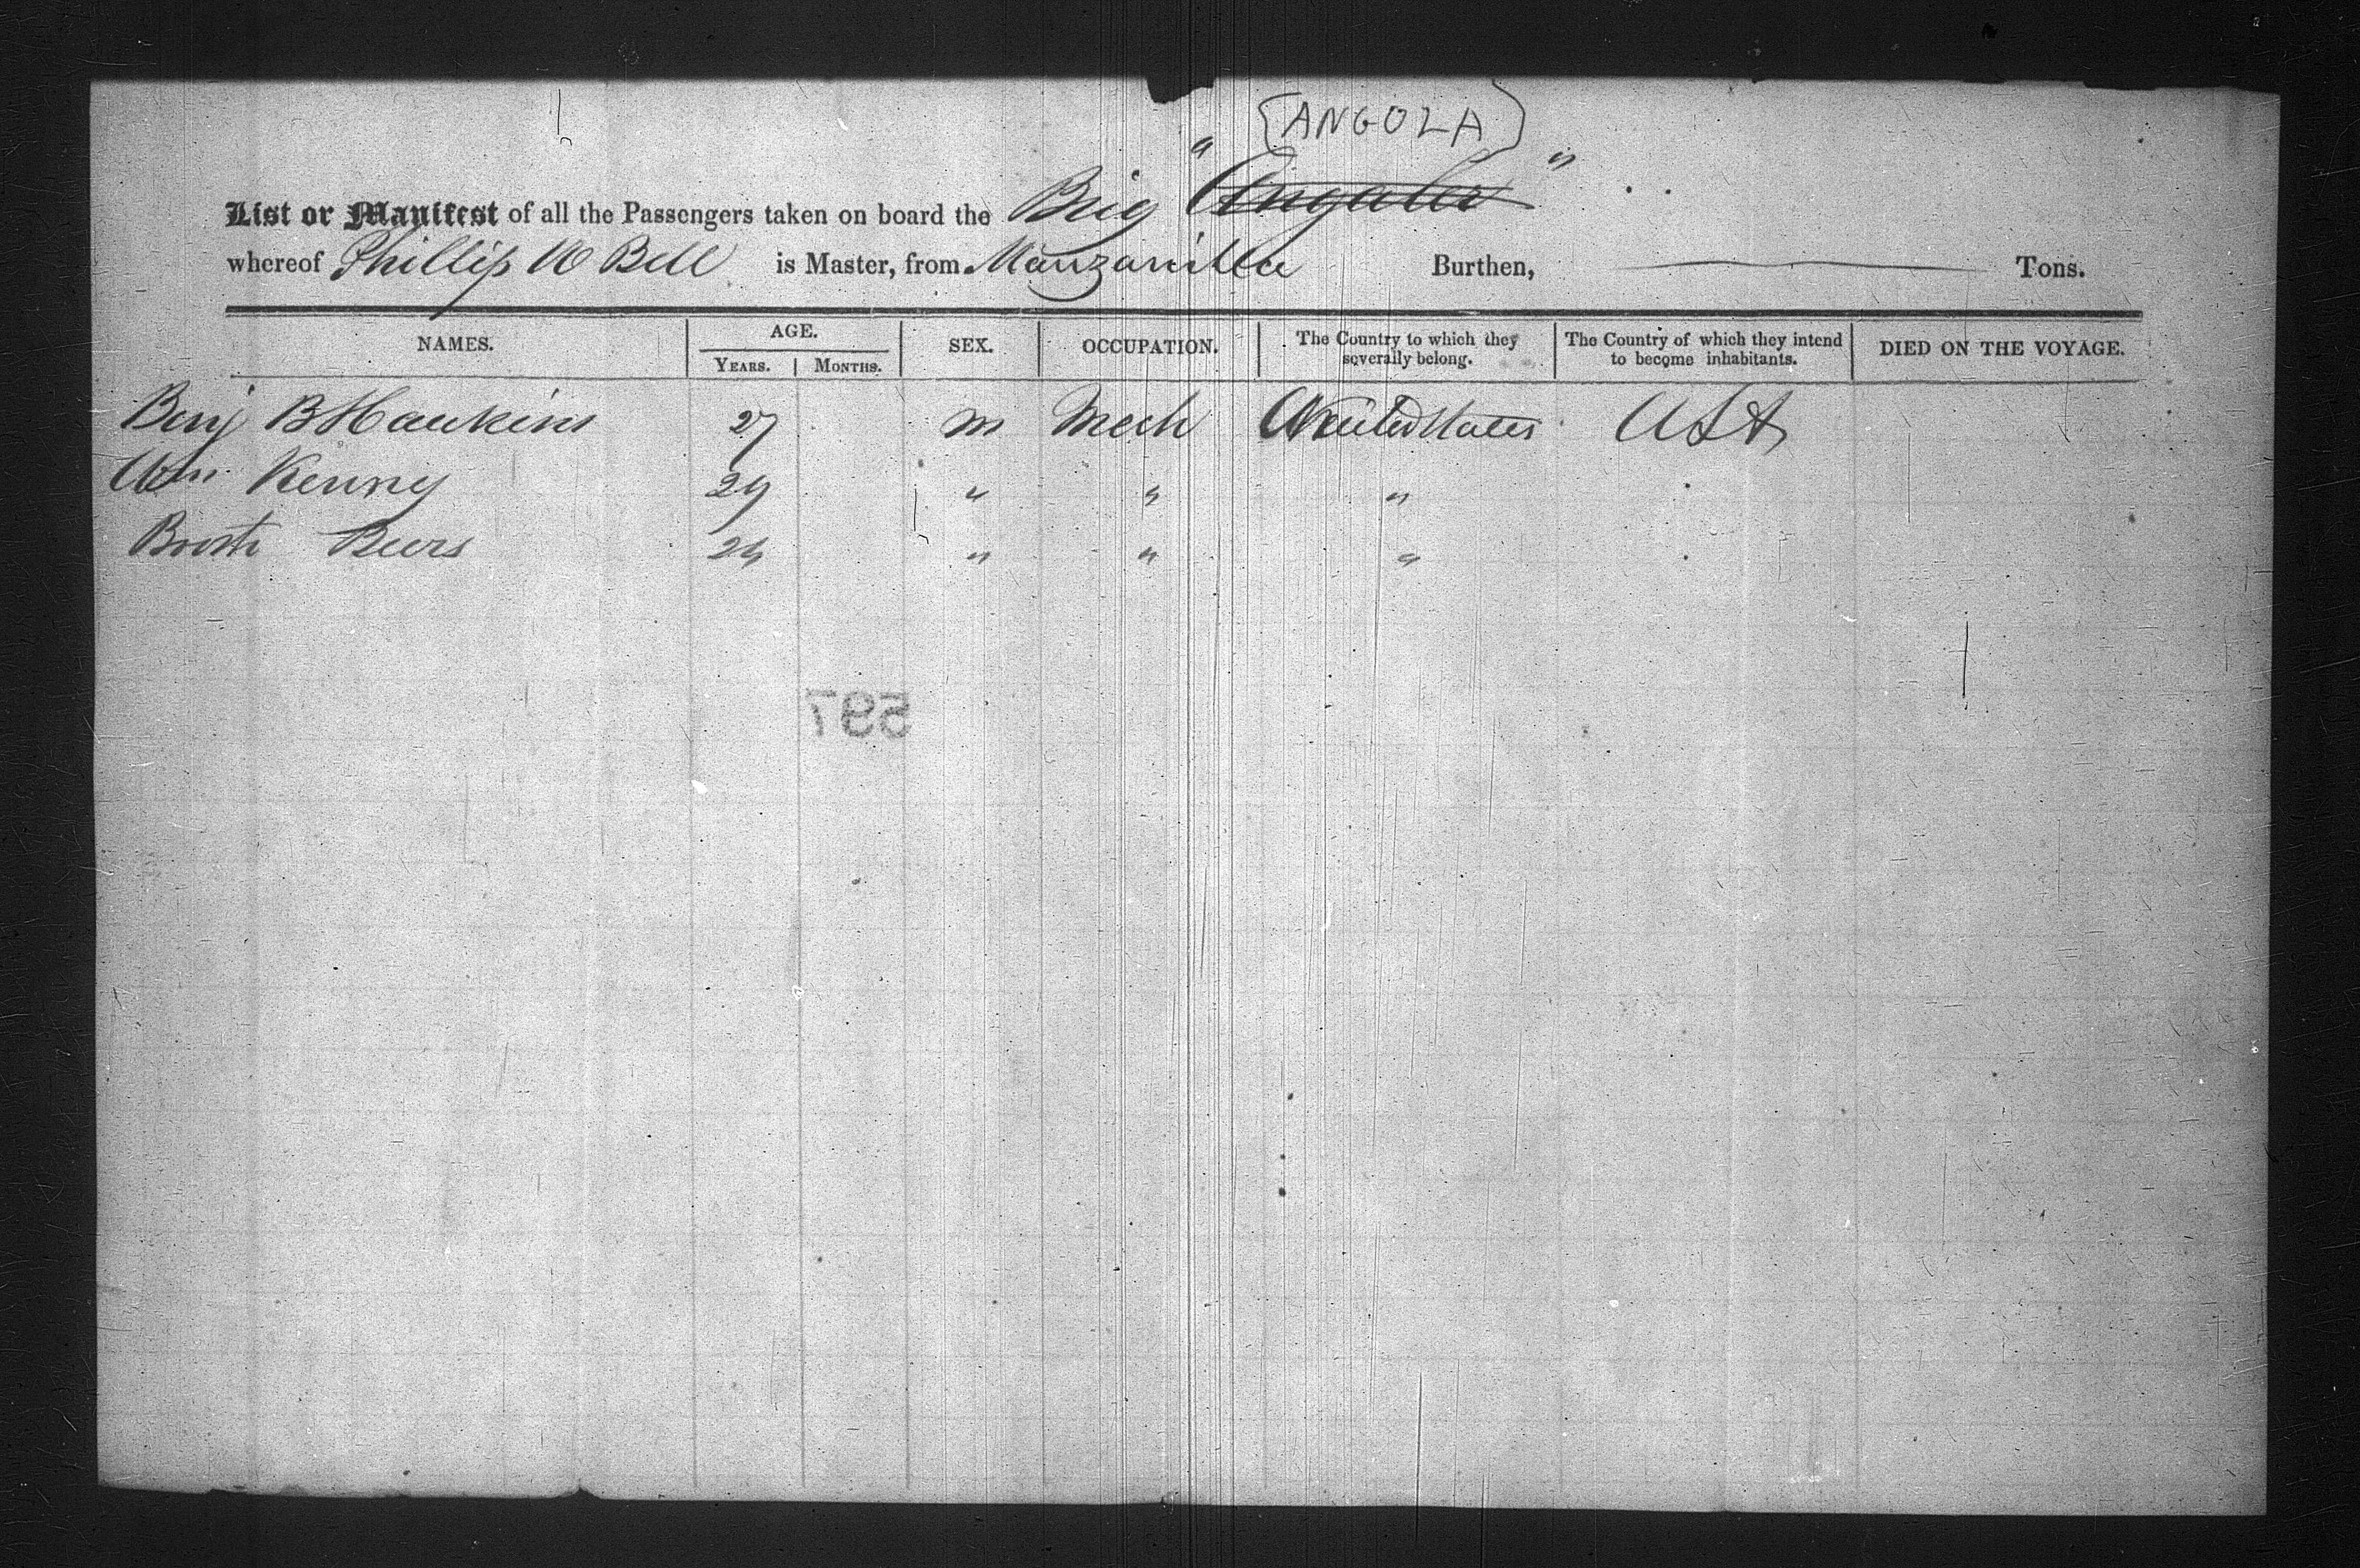 [ANGOLA]
List or Manifest of all the Passengers taken on board the Brig " "
whereof Phillip W Bell is Master, from Manzanilla Burthen, Tons.
NAMES. AGE. SEX. OCCUPATION. The Country to which they severally belong. The Country of which they intend to become inhabitants. DIED ON THE VOYAGE.
YEARS. MONTHS.
Benj B Hawkins 27 m Mech United States U S A
Wm Kenny 29 " " "
Beers 24 " " "
597